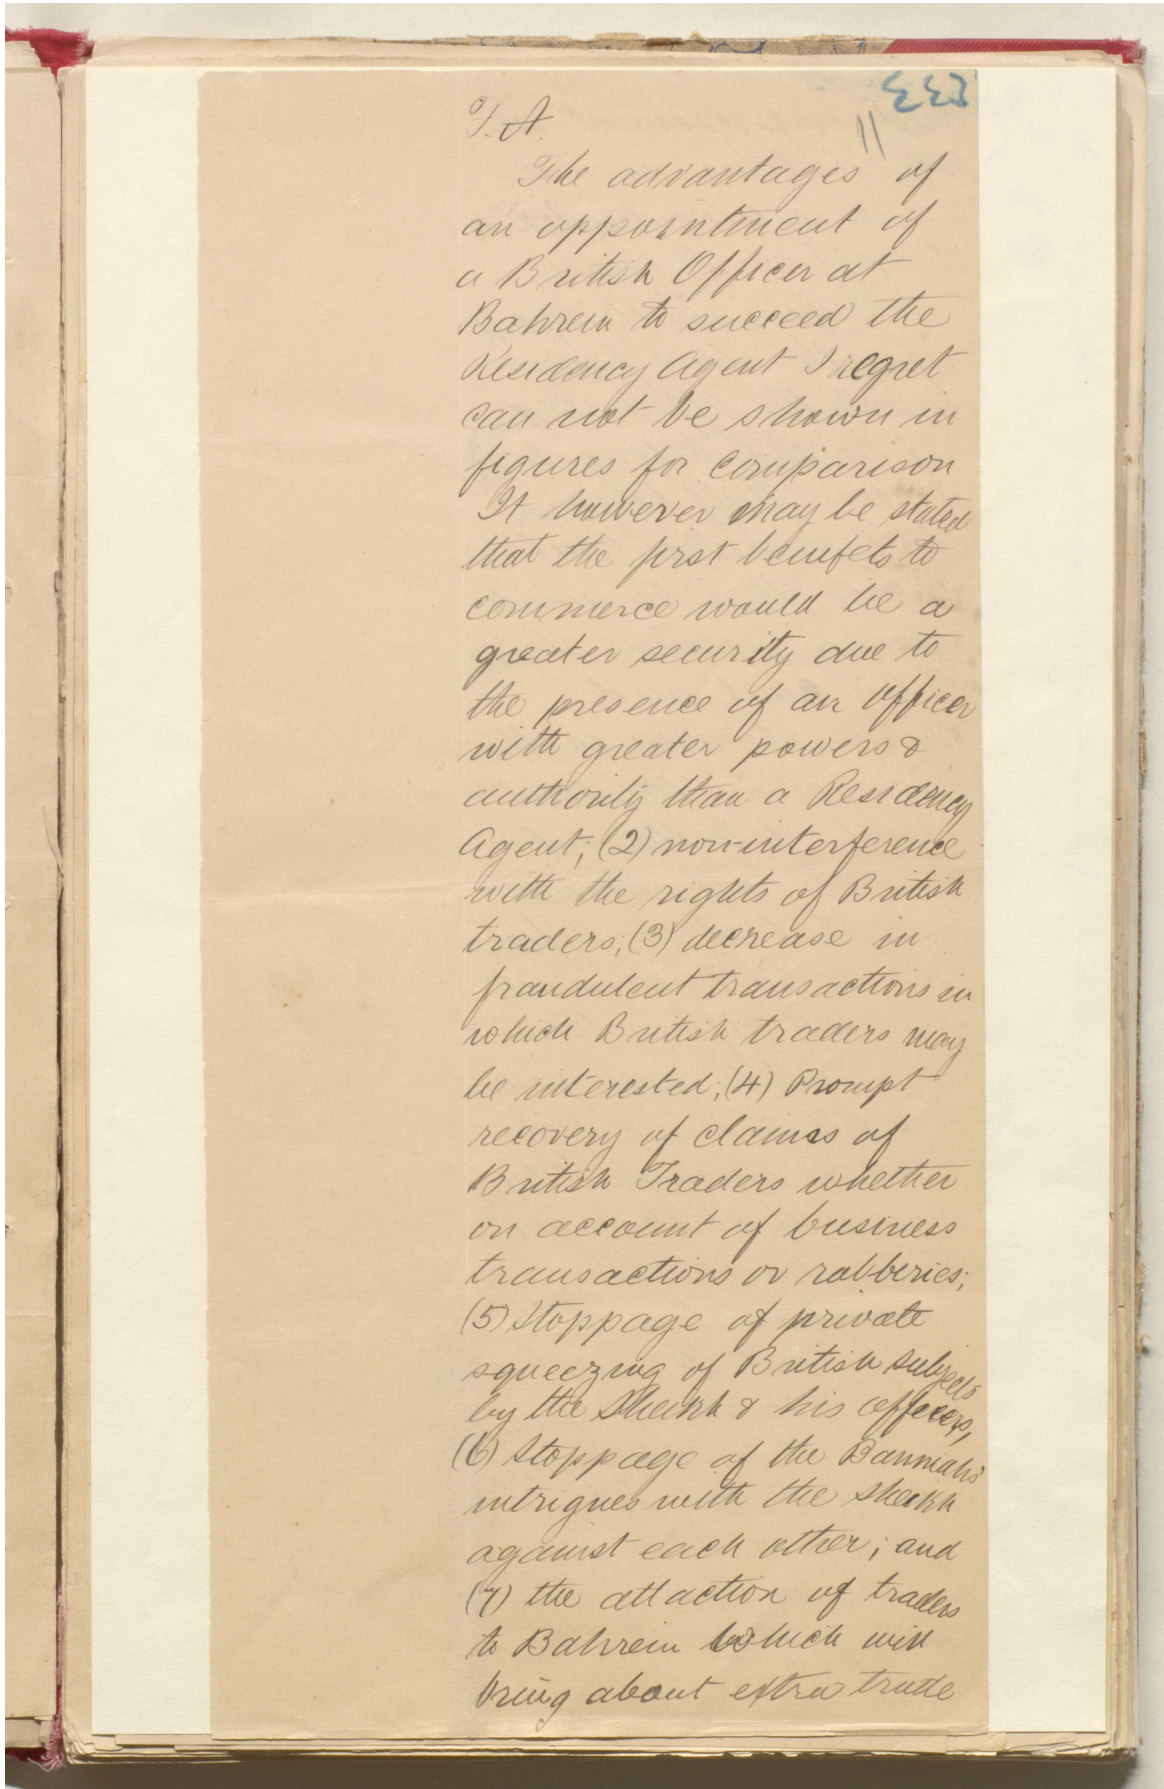 F. A.
11
The advantages of
an appointment of
a British Officer at
Bahrein to succeed the
Residency Agent I regret
can not be shown in
figures for comparison
It however may be stated
that the first benifets to
commerce would be a
greater security due to
the presence of an officer
with greater powers &
authority than a Residency
Agent; (2) non-interference
with the rights of British
traders; (3) decrease in
fraudulent transactions in
which British traders may
be interested; (4) Prompt
recovery of claims of
British Traders whether
on account of business
transactions or robberies;
(5) Stoppage of private
squeezing of British subjects
by the Sheikh & his officers,
(6) Stoppage of the Banniahs'
intrigues with the Sheikh
against each other; and
(7) the attaction of traders
to Bahrein which will
bring about extra trade